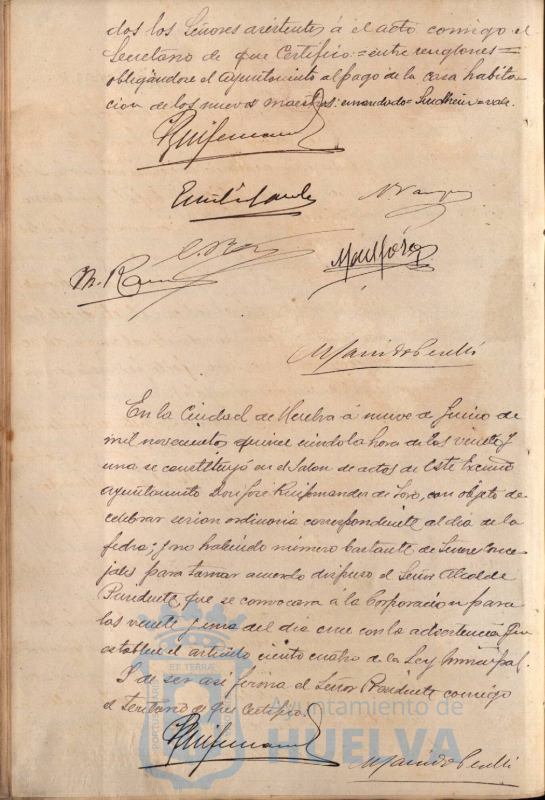 dos los Señores asistentes á el acto conmigo el
Secretario de que Certifico.=entre renglones=
obligándose el Ayuntamiento al pago de la casa habita-
cion de los nuevos maestros: enmendado= =vale.
M. R
En la Ciudad de Huelva á nueve de Junio de
mil novecientos quince siendo la hora de las veinte y
una se constituyó en el Salon de actos de este Excmo
Ayuntamiento Don José Ruifernandez de Toro, con objeto de
celebrar sesion ordinaria correspondiente al dia de la
fecha; y no habiendo número bastante de Señores Conce-
jales para tomar acuerdo dispuso el Señor Alcalde
Presidente que se convocara á la Corporacion para
las veinte y una del dia once con la advertencia que
establece el artículo ciento cuatro de la Ley Municipal.
Y de ser así firma el Señor Presidente conmigo
el Secretario de que Certifico.
Ayuntamiento de
HUELVA